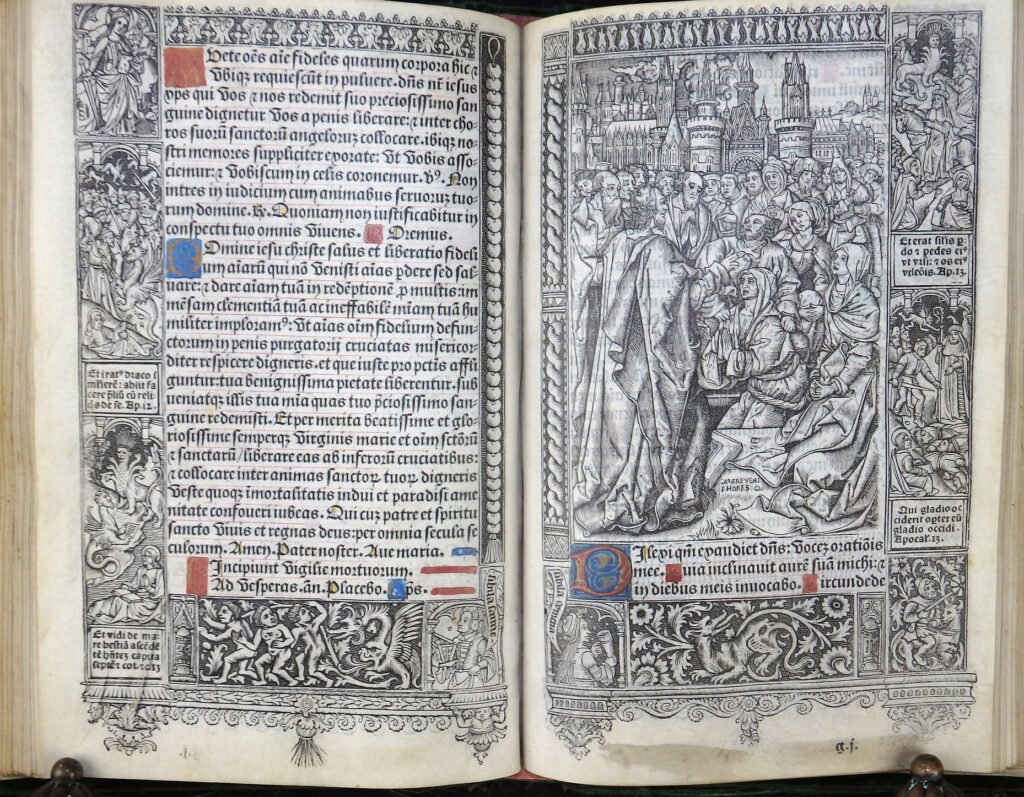 Avete oēs aīe fideles quarum corpora hic ⁊
Vbiqȝ requiescūt in puluere. dn̄s iesus
xp̄s qui Vos ⁊ nos redemit suo preciosissimo san
guine dignetur Vos a penis liberare: ⁊ inter cho-
ros suorū sanctorū angeloruȝ collocare. ibiqȝ no-
stri memores suppliciter exorate: Vt Vobis asso-
ciemur: ⁊ Vobiscum in celis coronemur. ℣. Non
intres in iudicium cum animabus seruoruȝ tuo-
rum domine. ℟. Quoniam non iustificabitur in
conspectu tuo omnis Viuens. Oremus.
Domine iesu christe salus et liberatio fideli
um aīarū qui nō Venisti aīas ꝑdere sed sal-
uare: ⁊ dare aīam tuā in redēptionē ꝓ multis: im
mēsam clementiā tuā ac ineffabilē mīam tuā hu
militer imploramꝰ: Vt aīas oīm fidelium defun-
ctorum in penis purgatorij cruciatas misericor-
diter respicere digneris. et que iuste pro pctīs affli
guntur: tua benignissima pietate liberentur. sub
ueniatqȝ illis tua mīa quas tuo p̄ciosissimo san-
guine redemisti. Et per merita beatissime et glo-
riosissime semperqȝ Virginis marie et oīm sctōrū
⁊ sanctarū / liberare eas ab inferorū cruciatibus:
⁊ collocare inter animas sanctorꝝ tuorꝝ digneris
Veste quoqȝ īmortalitatis indui et paradisi ame
nitate confoueri iubeas. Qui cuȝ patre et spiritu
sancto Viuis et regnas deus: per omnia secula se
culorum. Amen. Pater noster. Aue maria.
Incipiunt Vigilie mortuorum.
Ad Vesperas. an̄. Placebo. ps.
Et iratꝰ draco ī
mlierē: abiit fa
cere p̄liū cū reli
qs de se. Ap. 12.
Et vidi de ma
re bestiā ascēdē
tē hn̄teȝ capita
septē ⁊ cor. ⁊c. 13
Sibila
.i.
Dilexi qm̄ exaudiet dn̄s: Voceȝ oratiōis
mee. Quia inclinauit aurē suā michi: ⁊
in diebus meis inuocabo. Circundede
Et erat silis ꝑ
do ⁊ pedes eiꝰ
vt vrsi: ⁊ os eiꝰ
vt leōis. Ap. 13.
Qui gladio oc
ciderit optet eū
gladio occidi.
Apocal. 13.
Sibila
g.j.